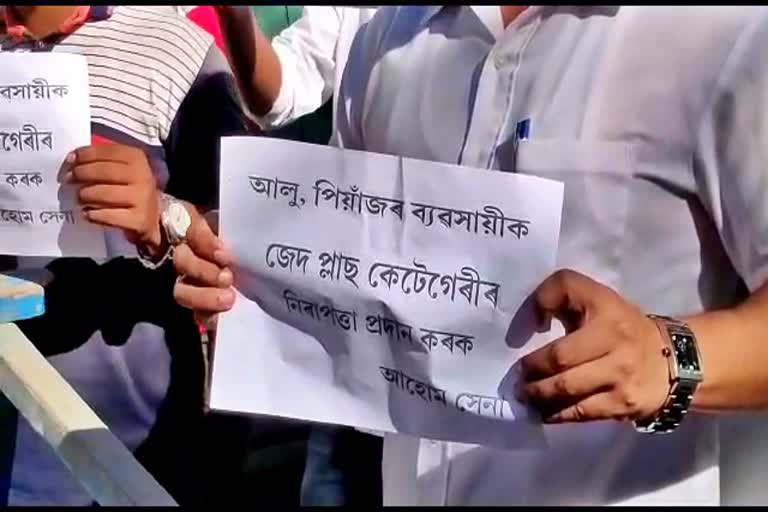 ৱসায়ীক
গেৰীৰ
কৰক
হোম সেনা
আলু, পিয়াঁজৰ ব্যৱসায়ীক
জেদ প্লাছ কেটেগেৰীৰ
নিৰাপত্তা প্ৰদান কৰক
আহোম সেনা